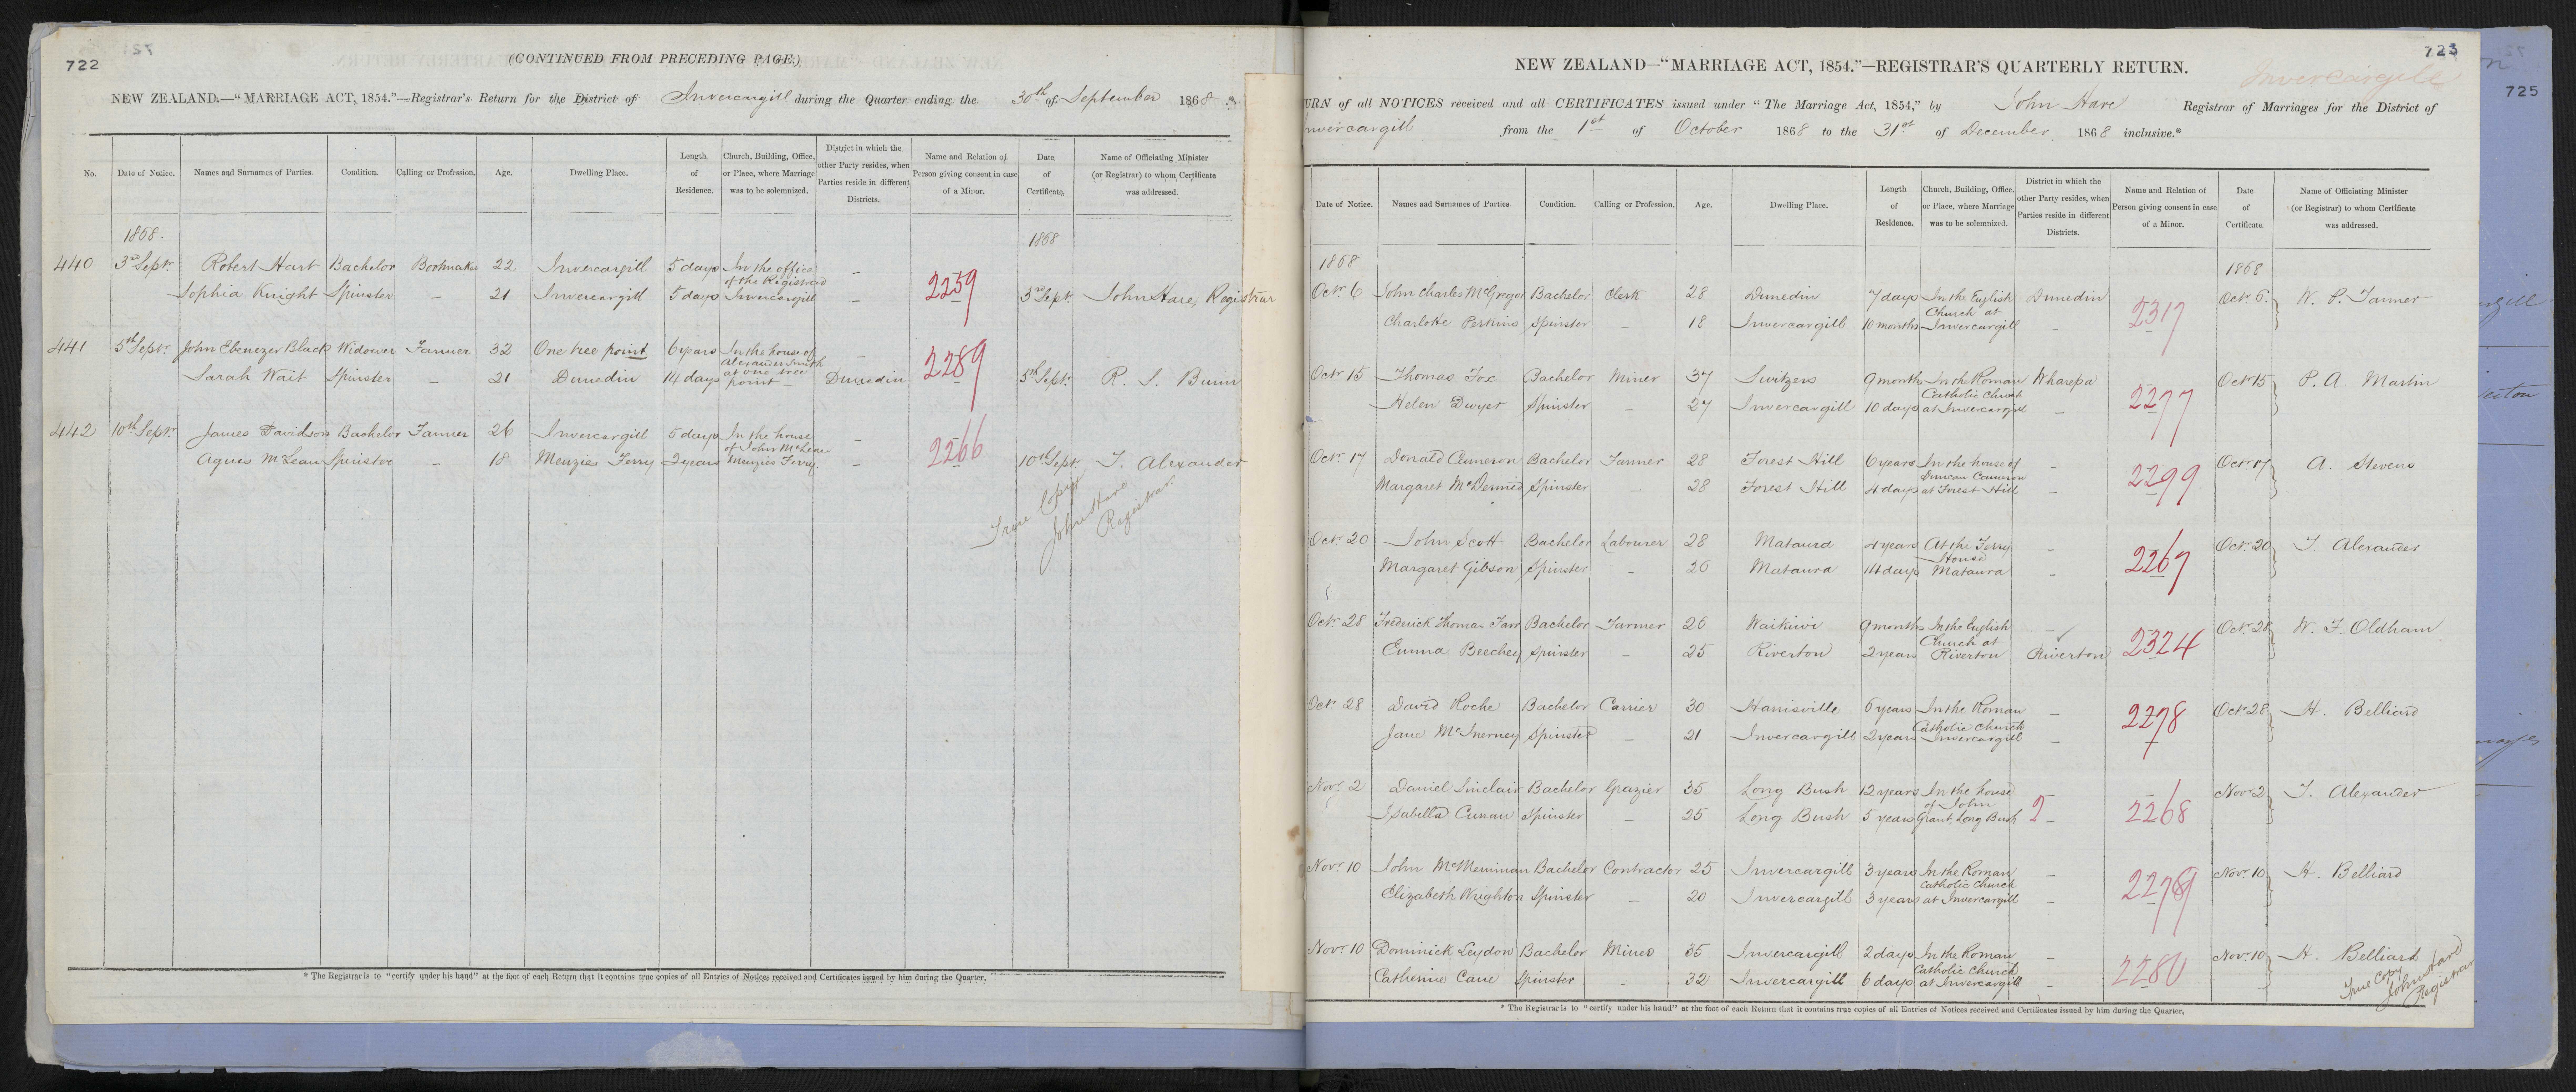 722
(CONTINUED FROM PRECEDING PAGE.)
NEW ZEALAND.—"MARRIAGE ACT, 1854."—Registrar's Return for the District of Invercargill during the Quarter ending the 30th of September 1868
No. Date of Notice. Names and Surnames of Parties. Condition. Calling or Profession. Age. Dwelling Place. Length of Residence. Church, Building, Office, or Place, where Marriage was to be solemnized. District in which the other Party resides, when Parties reside in different Districts. Name and Relation of Person giving consent in case of a Minor. Date of Certificate. Name of Officiating Minister (or Registrar) to whom Certificate was addressed.
1868. 1868
440 3rd Septr Robert Hart Bachelor Bootmaker 22 Invercargill 5 days In the office of the Registrar – 2259
Sophia Knight Spinster – 21 Invercargill 5 days Invercargill – 3rd Septr John Hare, Registrar
441 5th Septr John Ebenezer Black Widower Farmer 32 One tree point 6 years In the house of Alexander Smith – 2289
Sarah Wait Spinster – 21 Dunedin 14 days at one tree point – Dunedin 5th Septr R. S. Bunn
442 10th Septr James Davidson Bachelor Farmer 26 Invercargill 5 days In the house of John McLean – 2266
Agnes McLean Spinster – 18 Menzies Ferry 2 years Menzies Ferry – 10th Sept J. Alexander
True Copy
John Hare
Registrar
* The Registrar is to "certify under his hand" at the foot of each Return that it contains true copies of all Entries of Notices received and Certificates issued by him during the Quarter.
723
725
NEW ZEALAND—"MARRIAGE ACT, 1854."—REGISTRAR'S QUARTERLY RETURN.
Invercargill
URN of all NOTICES received and all CERTIFICATES issued under "The Marriage Act, 1854," by John Hare Registrar of Marriages for the District of
nvercargill from the 1st of October 1868 to the 31st of December 1868 inclusive.*
Date of Notice. Names and Surnames of Parties. Condition. Calling or Profession. Age. Dwelling Place. Length of Residence. Church, Building, Office, or Place, where Marriage was to be solemnized. District in which the other Party resides, when Parties reside in different Districts. Name and Relation of Person giving consent in case of a Minor. Date of Certificate. Name of Officiating Minister (or Registrar) to whom Certificate was addressed.
1868 1868
Octr 6 John Charles McGregor Bachelor Clerk 28 Dunedin 7 days In the English Church at Dunedin 2317 Octr 6. W. P. Tanner
Charlotte Perkins Spinster – 18 Invercargill 10 months Invercargill –
Octr 15 Thomas Fox Bachelor Miner 37 Switzers 9 months In the Roman Catholic Church Wharepa 2277 Octr 15 P. A. Martin
Helen Dwyer Spinster – 27 Invercargill 10 days at Invercargill –
Octr 17 Donald Cameron Bachelor Farmer 28 Forest Hill 6 years In the house of Duncan Cameron – 2299 Octr 17 A. Stevens
Margaret McDermid Spinster – 28 Forest Hill 4 days at Forest Hill –
Octr 20 John Scott Bachelor Labourer 28 Mataura 4 years At the Ferry House – 2267 Octr 20 J. Alexander
Margaret Gibson Spinster – 26 Mataura 14 days Mataura –
Octr 28 Frederick Thomas Farr Bachelor Farmer 26 Waikiwi 9 months In the English Church at – 2324 Octr 28 W. F. Oldham
Emma Beechey Spinster – 25 Riverton 2 years Riverton Riverton
Octr 28 David Roche Bachelor Carrier 30 Harrisville 6 years In the Roman Catholic Church – 2278 Octr 28 H. Belliard
Jane McInerney Spinster – 21 Invercargill 2 years Invercargill –
Novr 2 Daniel Sinclair Bachelor Grazier 35 Long Bush 12 years In the house of John 2268 Novr 2 J. Alexander
Isabella Cunan Spinster – 25 Long Bush 5 years Grant, Long Bush –
Novr 10 John McMeniman Bachelor Contractor 25 Invercargill 3 years In the Roman Catholic Church – 2279 Novr 10 H. Belliard
Elizabeth Wrighton Spinster – 20 Invercargill 3 years at Invercargill –
Novr 10 Dominick Leydon Bachelor Miner 35 Invercargill 2 days In the Roman Catholic Church – 2280 Novr 10 H. Belliard
Catherine Cane Spinster – 32 Invercargill 6 days at Invercargill –
True Copy
John Hare
Registrar
* The Registrar is to "certify under his hand" at the foot of each Return that it contains true copies of all Entries of Notices received and Certificates issued by him during the Quarter.